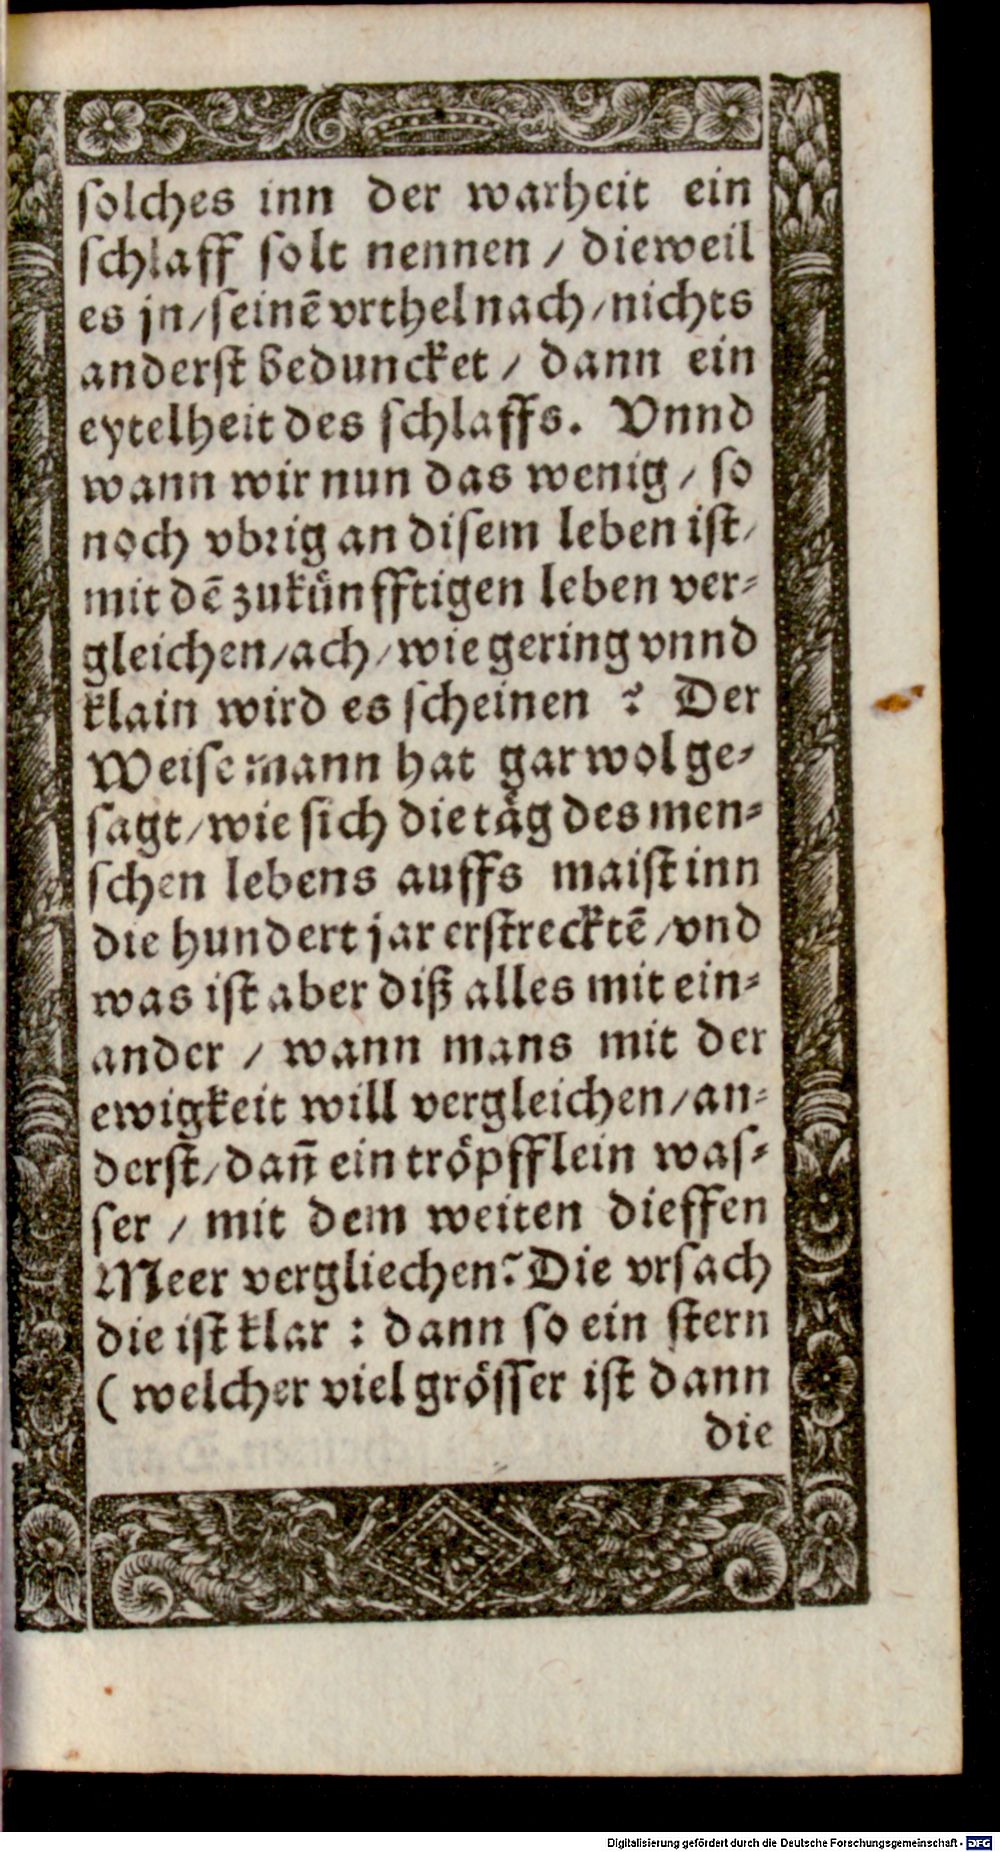 solches inn der warheit ein
schlaff solt nennen / dieweil
es jn / seinē vrthel nach / nichts
anderst beduncket / dann ein
eytelheit des schlaffs. Vnnd
wann wir nun das wenig / so
noch vbrig an disem leben ist /
mit dē zukünfftigen leben ver-
gleichen / ach / wie gering vnnd
klain wird es scheinen ? Der
Weise mann hat gar wol ge-
sagt / wie sich die täg des men-
schen lebens auffs maist inn
die hundert jar erstrecktē / vnd
was ist aber diß alles mit ein-
ander / wann mans mit der
ewigkeit will vergleichen / an-
derst / dañ ein tröpfflein was-
ser / mit dem weiten dieffen
Meer vergliechen? Die vrsach
die ist klar : dann so ein stern
( welcher viel grösser ist dann
die
Digitalisierung gefördert durch die Deutsche Forschungsgemeinschaft - DFG